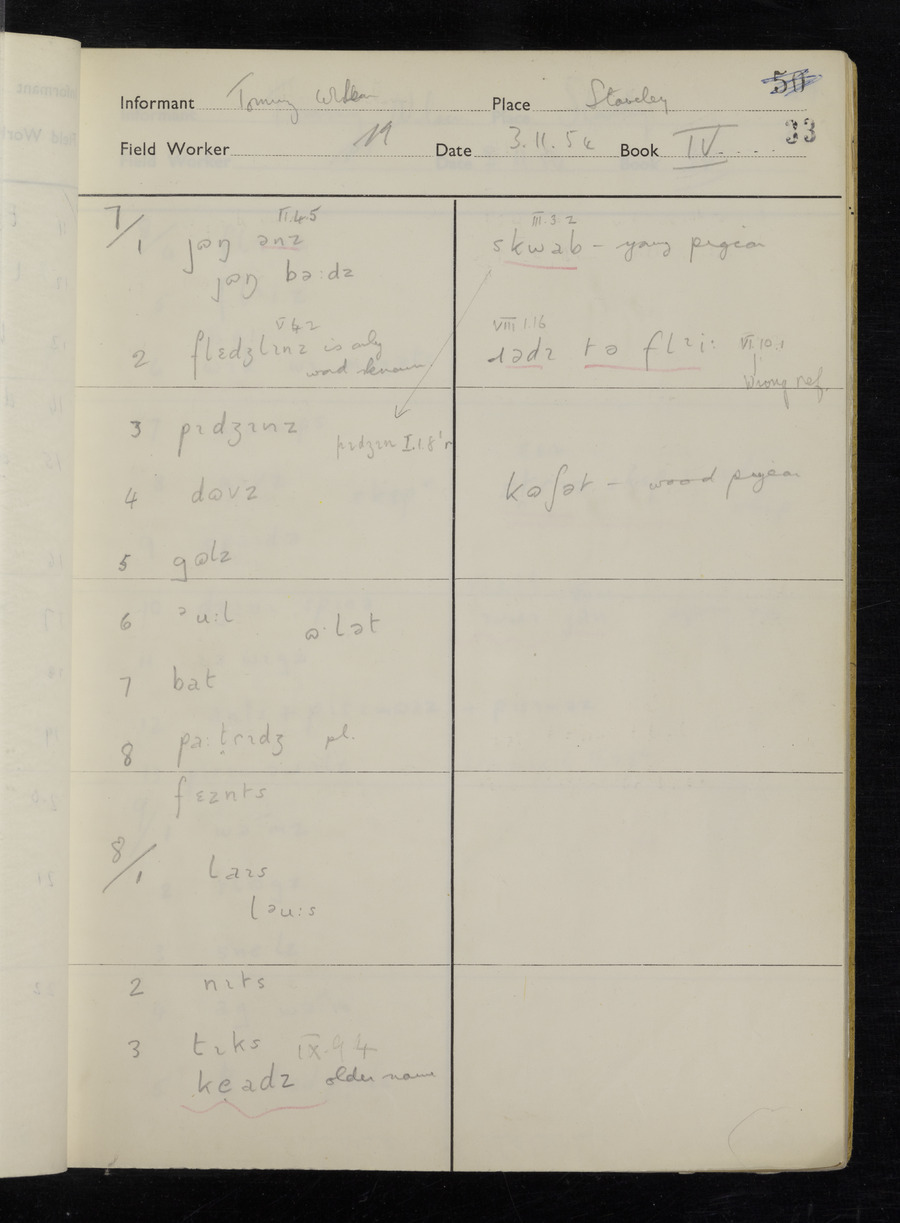 50
Informant Tommy Place Staveley
33
Field Worker Date 3.11.54 Book IV
7/
II.4.5
1 jɷŋ ənz
jɷŋ bə:dz
III.3.2
skwab – young pigeon
V 4 2
2 flɛdʒlɪnz is only
word known
VIII 1.16
ɹədɪ tə flɪi: VI.10.1
wrong ref.
3 pɪdʒɪnz
pɪdʒɪn I.1.8'n
4 dɷvz
kɷʃət – wood pigeon
5 gɷlz
6 ᵊu:l ɷ·lət
7 bat
8 pa:t̞rɪdʒ pl.
fɛznts
8/
1 laɪs
lᵊu:s
2 nɪts
3 tɪks IX.9 4
keadz older name